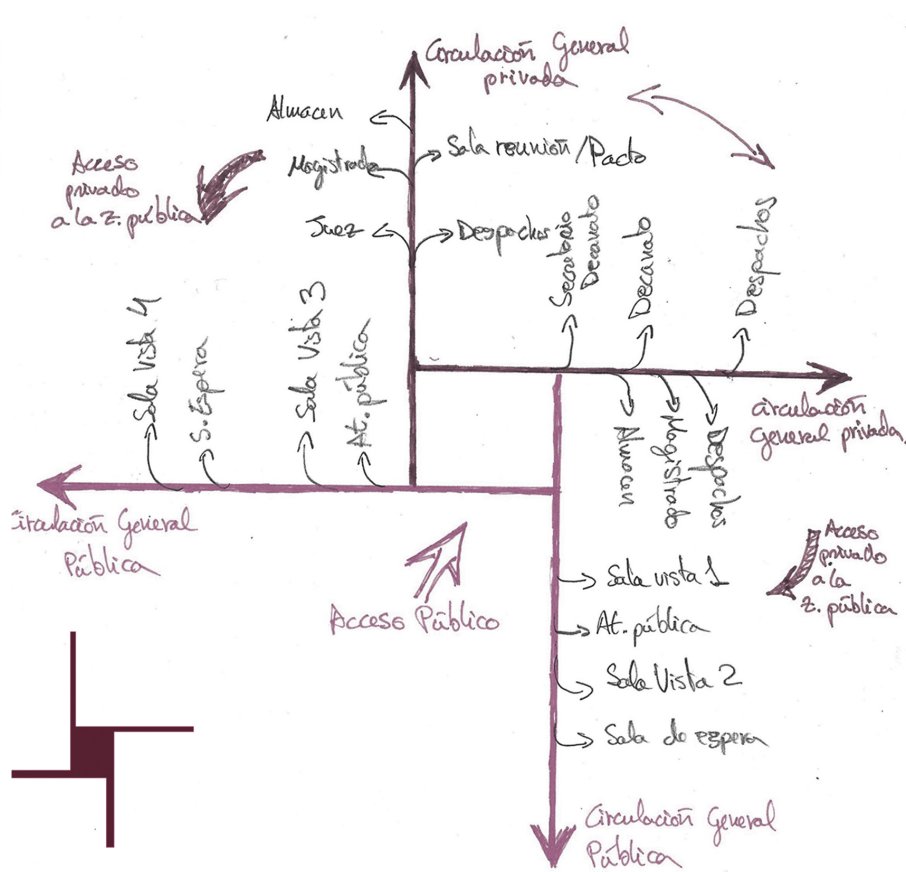 Circulación General
privada
Almacen
Sala reunión/Pacto
Magistrado
Acceso
privado
a la Z. pública
Juez
Despachos
Secretario
Decanato
Decanato
Despachos
Sala Vista 4
S. Espera
Sala Vista 3
At. pública
Circulación
General privada
Almacen
Magistrado
Despachos
Circulación General
Pública
Acceso Público
Acceso
privado
a la
Z. pública
Sala vista 1
At. pública
Sala Vista 2
Sala de espera
Circulación General
Pública